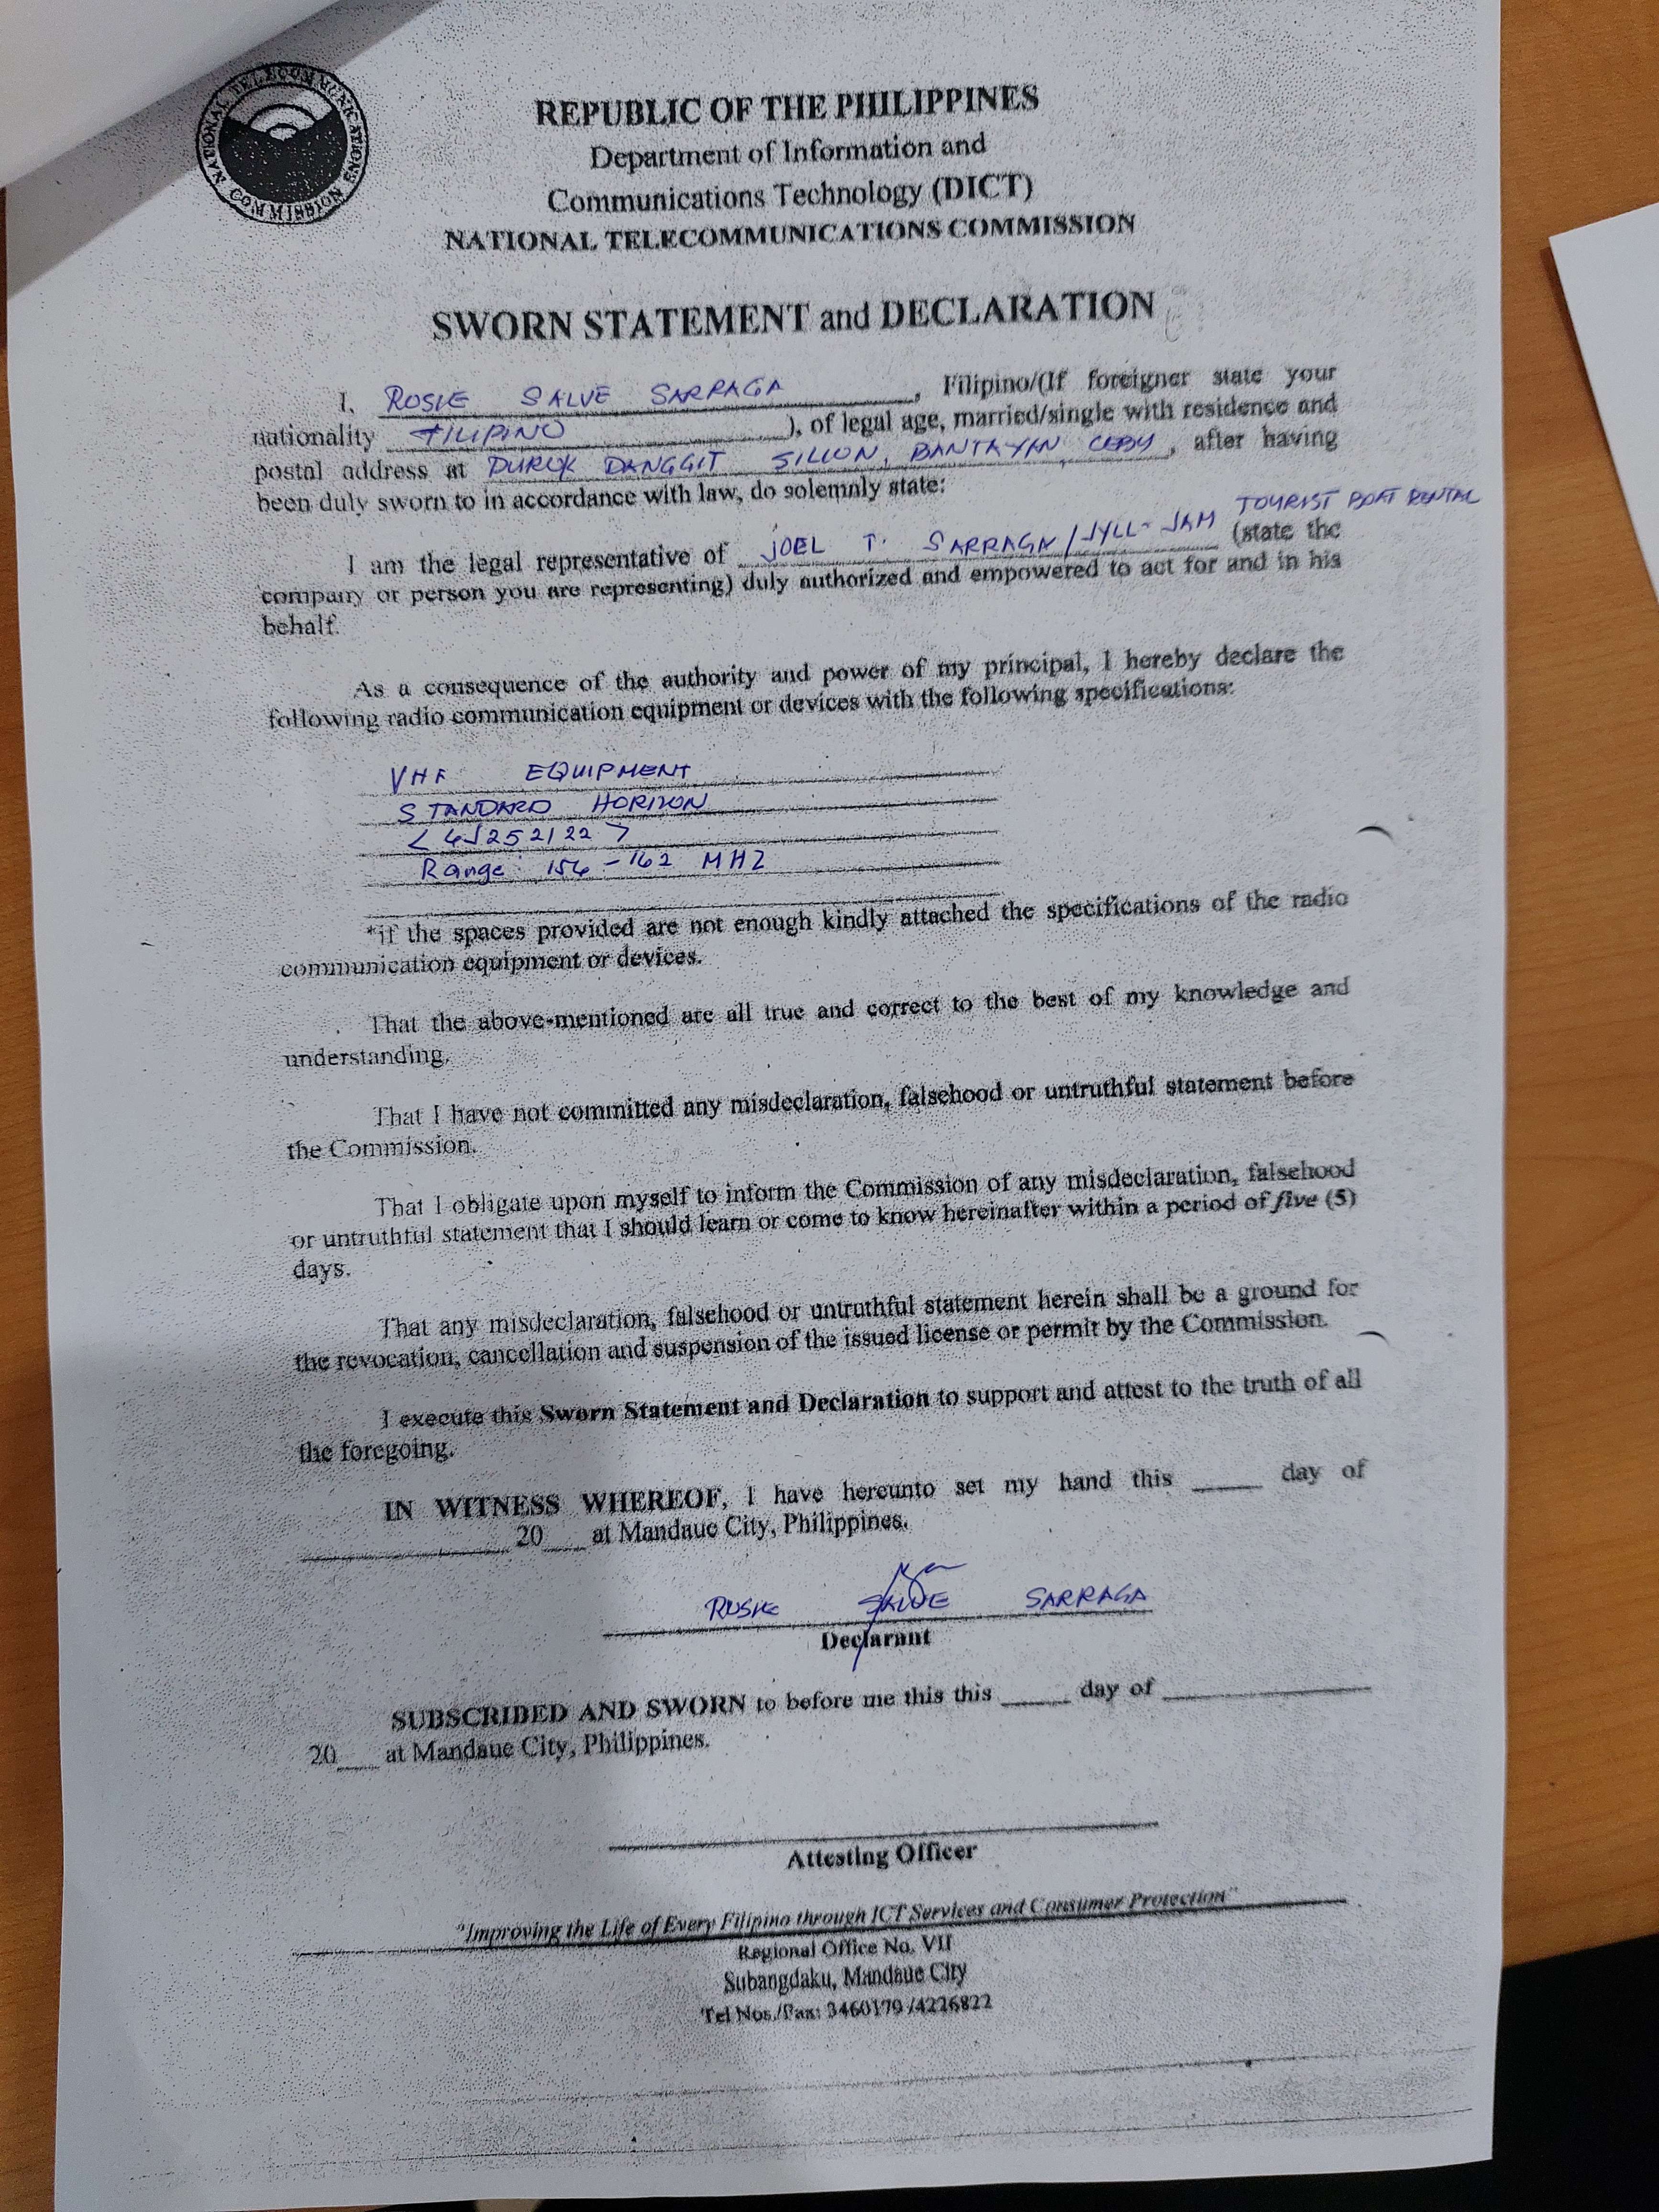 NATIONAL TELECOMMUNICATIONS COMMISSION
REPUBLIC OF THE PHILIPPINES
Department of Information and
Communications Technology (DICT)
NATIONAL TELECOMMUNICATIONS COMMISSION
SWORN STATEMENT and DECLARATION
I, ROSIE SALVE SARRAGA, Filipino/(If foreigner state your
nationality FILIPINO), of legal age, married/single with residence and
postal address at PUROK DANGGIT SILLON, BANTAYAN, CEBU, after having
been duly sworn to in accordance with law, do solemnly state:
TOURIST BOAT RENTAL
I am the legal representative of JOEL T. SARRAGA/JYLL-JAM (state the
company or person you are representing) duly authorized and empowered to act for and in his
behalf.
As a consequence of the authority and power of my principal, I hereby declare the
following radio communication equipment or devices with the following specifications:
VHF EQUIPMENT
STANDARD HORIZON
Range: 156-162 MHZ
*if the spaces provided are not enough kindly attached the specifications of the radio
communication equipment or devices.
That the above-mentioned are all true and correct to the best of my knowledge and
understanding.
That I have not committed any misdeclaration, falsehood or untruthful statement before
the Commission.
That I obligate upon myself to inform the Commission of any misdeclaration, falsehood
or untruthful statement that I should learn or come to know hereinafter within a period of five (5)
days.
That any misdeclaration, falsehood or untruthful statement herein shall be a ground for
the revocation, cancellation and suspension of the issued license or permit by the Commission.
I execute this Sworn Statement and Declaration to support and attest to the truth of all
the foregoing.
IN WITNESS WHEREOF, I have hereunto set my hand this _____ day of
_______________ 20___ at Mandaue City, Philippines.
ROSIE SALVE SARRAGA
Declarant
SUBSCRIBED AND SWORN to before me this this _____ day of _______________
20___ at Mandaue City, Philippines.
Attesting Officer
"Improving the Life of Every Filipino through ICT Services and Consumer Protection"
Regional Office No. VII
Subangdaku, Mandaue City
Tel Nos./Fax: 3460179 /4226822